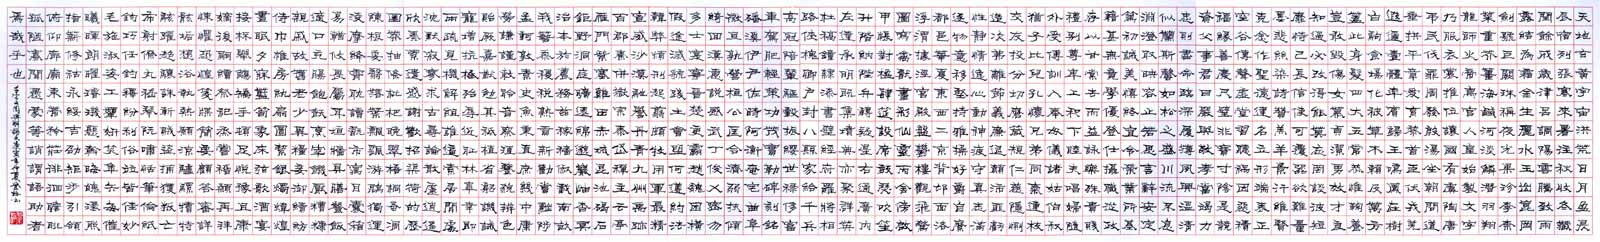 天地玄黃宇宙洪荒日月盈昃
辰宿列張寒來暑往秋收冬藏
閏餘成歲律呂調陽雲騰致雨
露結為霜金生麗水玉出崑岡
劍號巨闕珠稱夜光果珍李柰
菜重芥薑海鹹河淡鱗潛羽翔
龍師火帝鳥官人皇始制文字
乃服衣裳推位讓國有虞陶唐
弔民伐罪周發殷湯坐朝問道
垂拱平章愛育黎首臣伏戎羌
遐邇壹體率賓歸王鳴鳳在樹
白駒食場化被草木賴及萬方
蓋此身髮四大五常恭惟鞠養
豈敢毀傷女慕貞潔男效才良
知過必改得能莫忘罔談彼短
靡恃己長信使可覆器欲難量
墨悲絲染詩讚羔羊景行維賢
克念作聖德建名立形端表正
空谷傳聲虛堂習聽禍因惡積
福緣善慶尺璧非寶寸陰是競
資父事君曰嚴與敬孝當竭力
忠則盡命臨深履薄夙興溫凊
似蘭斯馨如松之盛川流不息
淵澄取映容止若思言辭安定
篤初誠美慎終宜令榮業所基
籍甚無竟學優登仕攝職從政
存以甘棠去而益詠樂殊貴賤
禮別尊卑上和下睦夫唱婦隨
外受傅訓入奉母儀諸姑伯叔
猶子比兒孔懷兄弟同氣連枝
交友投分切磨箴規仁慈隱惻
造次弗離節義廉退顛沛匪虧
性靜情逸心動神疲守真志滿
逐物意移堅持雅操好爵自縻
都邑華夏東西二京背邙面洛
浮渭據涇宮殿盤鬱樓觀飛驚
圖寫禽獸畫彩仙靈丙舍傍啟
甲帳對楹肆筵設席鼓瑟吹笙
升階納陛弁轉疑星右通廣內
左達承明既集墳典亦聚群英
杜稿鍾隸漆書壁經府羅將相
路俠槐卿戶封八縣家給千兵
高冠陪輦驅轂振纓世祿侈富
車駕肥輕策功茂實勒碑刻銘
磻溪伊尹佐時阿衡奄宅曲阜
微旦孰營桓公匡合濟弱扶傾
綺迴漢惠說感武丁俊乂密勿
多士寔寧晉楚更霸趙魏困橫
假途滅虢踐土會盟何遵約法
韓弊煩刑起翦頗牧用軍最精
宣威沙漠馳譽丹青九州禹跡
百郡秦并嶽宗泰岱禪主云亭
雁門紫塞雞田赤城昆池碣石
鉅野洞庭曠遠綿邈巖岫杳冥
治本於農務茲稼穡俶載南畝
我藝黍稷稅熟貢新勸賞黜陟
孟軻敦素史魚秉直庶幾中庸
勞謙謹敕聆音察理鑑貌辨色
貽厥嘉猷勉其祗植省躬譏誡
寵增抗極殆辱近恥林皋幸即
兩疏見機解組誰逼索居閒處
沉默寂寥求古尋論散慮逍遙
欣奏累遣慼謝歡招渠荷的歷
園莽抽條枇杷晚翠梧桐早凋
陳根委翳落葉飄颻遊鵾獨運
凌摩絳霄耽讀翫市寓目囊箱
易輶攸畏屬耳垣牆具膳餐飯
適口充腸飽飫烹宰飢厭糟糠
親戚故舊老少異糧妾御績紡
侍巾帷房紈扇圓潔銀燭煒煌
晝眠夕寐藍筍象床弦歌酒讌
接杯舉觴矯手頓足悅豫且康
嫡後嗣續祭祀蒸嘗稽顙再拜
悚懼恐惶牋牒簡要顧答審詳
骸垢想浴執熱願涼驢騾犢特
駭躍超驤誅斬賊盜捕獲叛亡
布射僚丸嵇琴阮嘯恬筆倫紙
鈞巧任釣釋紛利俗並皆佳妙
毛施淑姿工顰妍笑年矢每催
曦暉朗曜璇璣懸斡晦魄環照
指薪修祜永綏吉劭矩步引領
俯仰廊廟束帶矜莊徘徊瞻眺
孤陋寡聞愚蒙等誚謂語助者
焉哉乎也